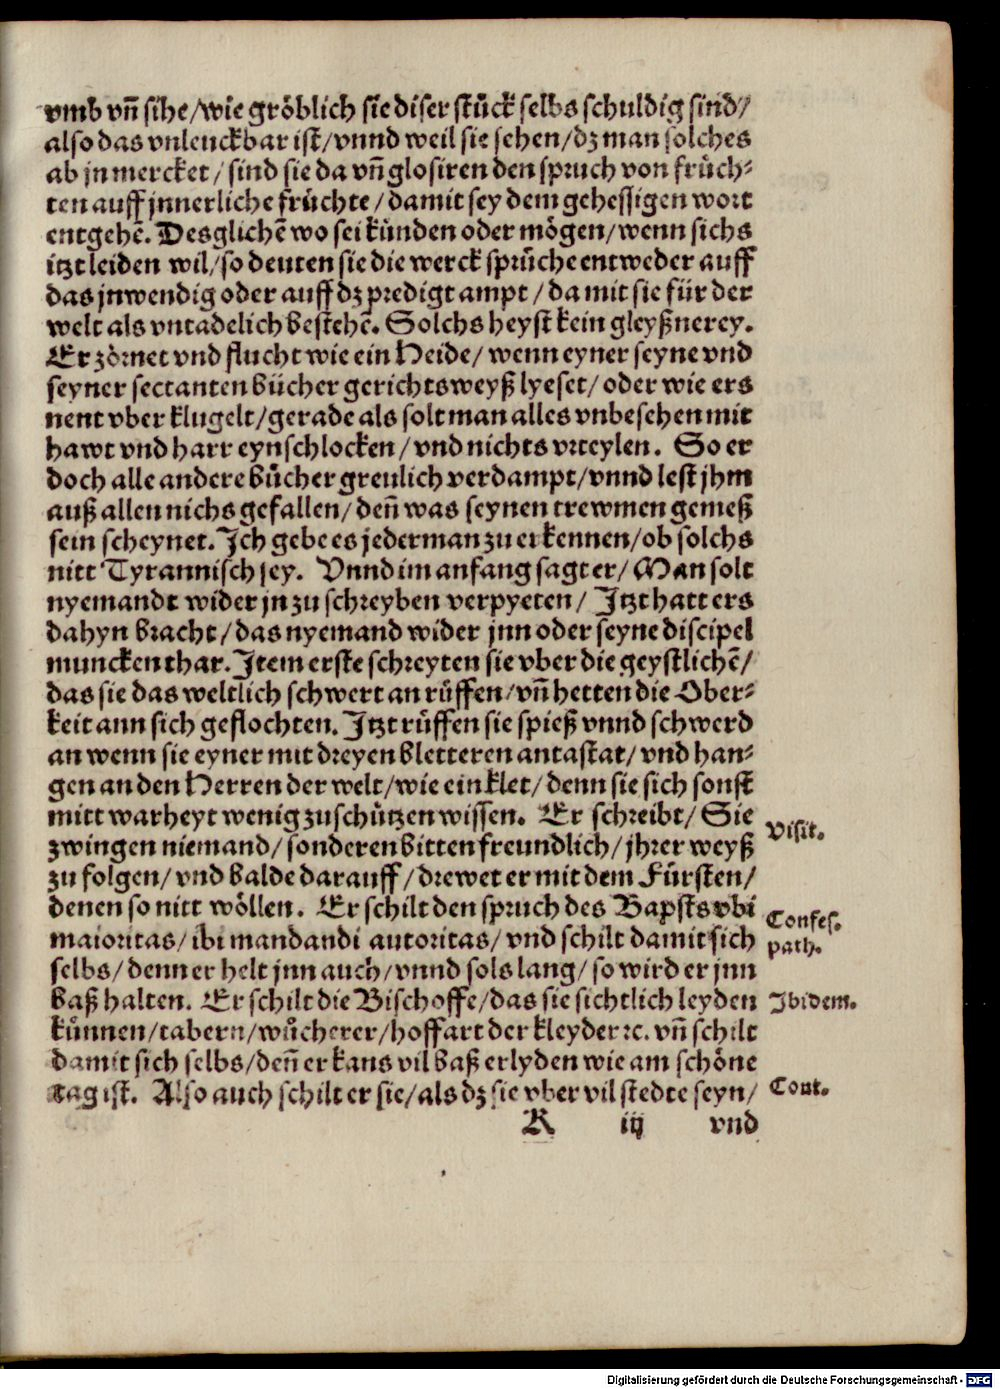 vmb vñ sihe/wie gröblich sie diser stück selbs schuldig sind/
also das vnleuckbar ist/vnnd weil sie sehen/dz man solches
ab jn mercket/sind sie da vñ glosiren den spruch von früch⸗
ten auff jnnerliche früchte/damit sey dem gehessigen wort
entgehē. Desglichē wo sei künden oder mögen/wenn sichs
itzt leiden wil/so deuten sie die werck sprüche entweder auff
das jnwendig oder auff dz predigt ampt/da mit sie für der
welt als vntadelich bestehē. Solchs heyst kein gleyßnerey.
Er zörnet vnd flucht wie ein Heide/wenn eyner seyne vnd
seyner sectanten bücher gerichtsweyß lyeset/oder wie ers
nent vber klugelt/gerade als solt man alles vnbesehen mit
hawt vnd harr eynschlocken/vnd nichts vrteylen. So er
doch alle andere bücher greulich verdampt/vnnd lest jhm
auß allen nichs gefallen/deñ was seynen trewmen gemeß
sein scheynet. Ich gebe es jederman zu erkennen/ob solchs
nitt Tyrannisch sey. Vnnd im anfang sagt er/Man solt
nyemandt wider jn zu schreyben verpyeten/ Itzt hatt ers
dahyn bracht/das nyemand wider jnn oder seyne discipel
muncken thar. Item erste schreyten sie vber die geystlichē/
das sie das weltlich schwert an rüffen/vñ hetten die Ober⸗
keit ann sich geflochten. Itzt rüffen sie spieß vnnd schwerd
an wenn sie eyner mit dreyen bletteren antastat/vnd han⸗
gen an den Herren der welt/wie ein klet/denn sie sich sonst
mitt warheyt wenig zuschützen wissen. Er schreibt/Sie
zwingen niemand/sonderen bitten freundlich/jhrer weyß
zu folgen/vnd balde darauff/drewet er mit dem Fürsten/
denen so nitt wöllen. Er schilt den spruch des Bapsts vbi
maioritas/ibi mandandi autoritas/vnd schilt damit sich
selbs/denn er helt jnn auch/vnnd sols lang/so wird er jnn
baß halten. Er schilt die Bischoffe/das sie sichtlich leyden
künnen/tabern/wůcherer/hoffart der kleyder ꝛc. vñ schilt
damit sich selbs/deñ er kans vil baß erlyden wie am schöne
tag ist. Also auch schilt er sie/als dz sie vber vil stedte seyn/
R iij vnd
Visit.
Confes.
path.
Ibidem.
Cont.
Digitalisierung gefördert durch die Deutsche Forschungsgemeinschaft - DFG